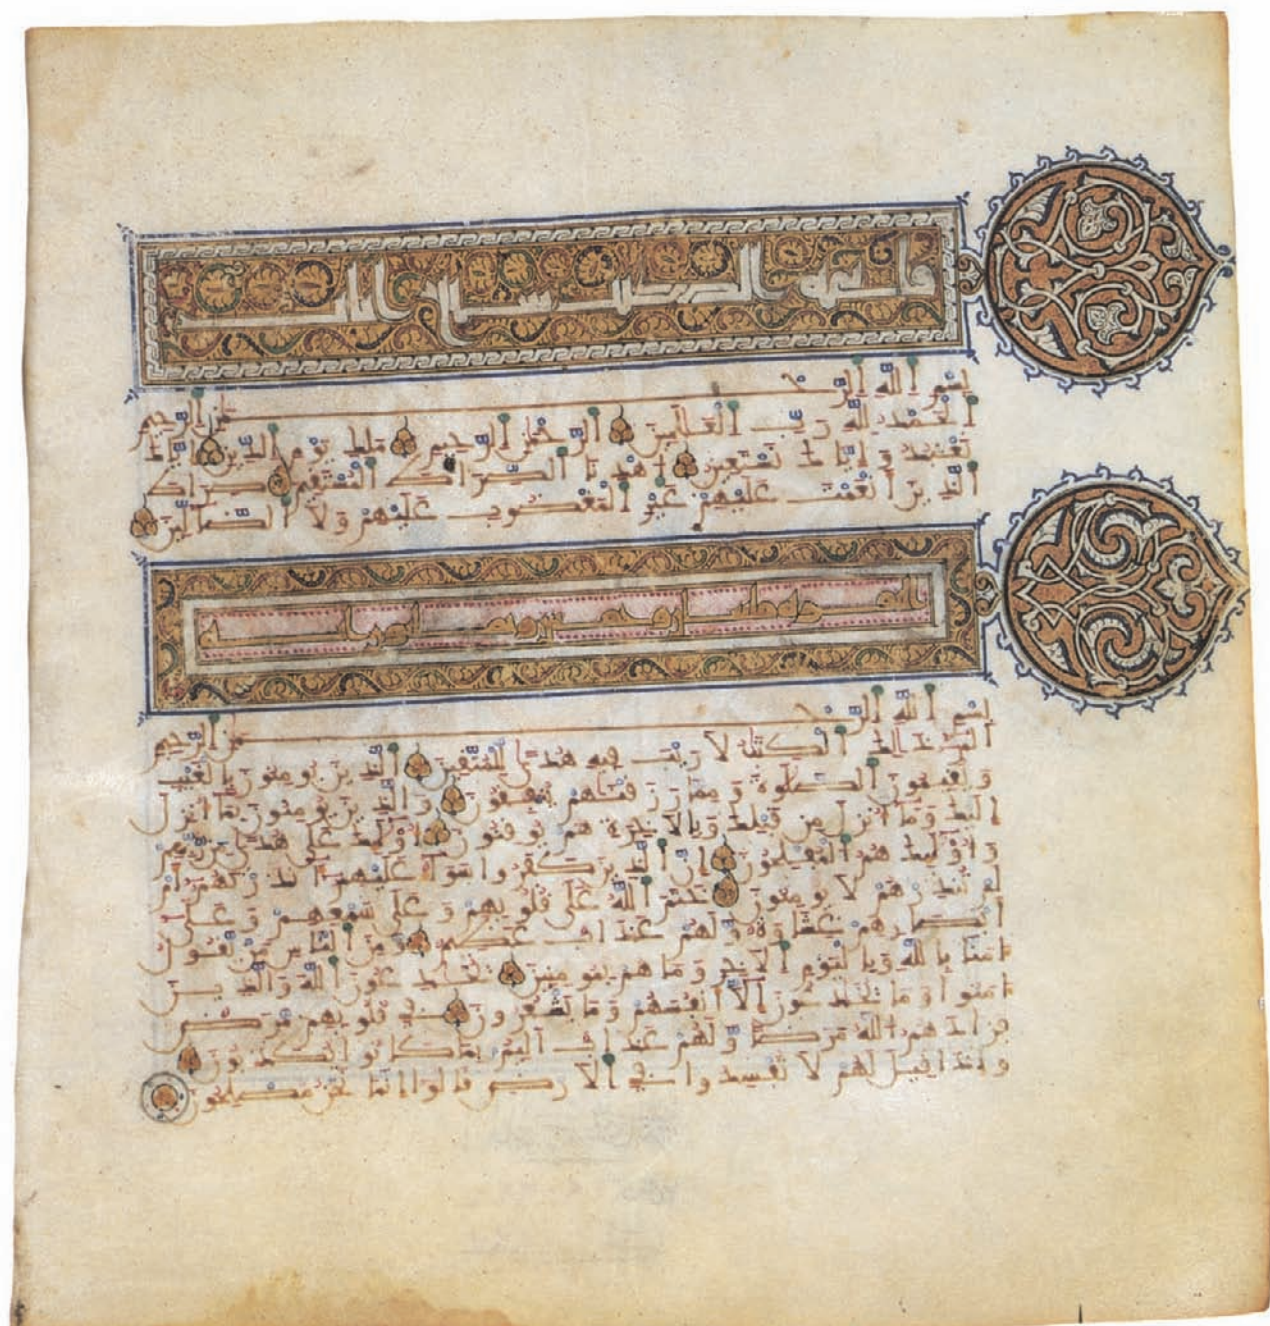 فاتحة الكتاب سبع ايات
بِسْمِ اللَّهِ الرَّحْمَٰنِ الرَّحِيمِ
الْحَمْدُ لِلَّهِ رَبِّ الْعَٰلَمِينَ الرَّحْمَٰنِ الرَّحِيمِ مَلِكِ يَوْمِ الدِّينِ إِيَّاكَ
نَعْبُدُ وَإِيَّاكَ نَسْتَعِينُ اهْدِنَا الصِّرَاطَ الْمُسْتَقِيمَ صِرَاطَ
الَّذِينَ أَنْعَمْتَ عَلَيْهِمْ غَيْرِ الْمَغْضُوبِ عَلَيْهِمْ وَلَا الضَّالِّينَ
البقرة
بِسْمِ اللَّهِ الرَّحْمَٰنِ الرَّحِيمِ
الٓمٓ ذَٰلِكَ الْكِتَٰبُ لَا رَيْبَ فِيهِ هُدًى لِّلْمُتَّقِينَ الَّذِينَ يُومِنُونَ بِالْغَيْبِ
وَيُقِيمُونَ الصَّلَوٰةَ وَمِمَّا رَزَقْنَٰهُمْ يُنفِقُونَ وَالَّذِينَ يُومِنُونَ بِمَا أُنزِلَ
إِلَيْكَ وَمَا أُنزِلَ مِن قَبْلِكَ وَبِالْأَخِرَةِ هُمْ يُوقِنُونَ أُوْلَٰئِكَ عَلَىٰ هُدًى مِّن رَّبِّهِمْ
وَأُوْلَٰئِكَ هُمُ الْمُفْلِحُونَ إِنَّ الَّذِينَ كَفَرُوا سَوَآءٌ عَلَيْهِمْ ءَانذَرْتَهُمْ أَمْ
لَمْ تُنذِرْهُمْ لَا يُومِنُونَ خَتَمَ اللَّهُ عَلَىٰ قُلُوبِهِمْ وَعَلَىٰ سَمْعِهِمْ وَعَلَىٰ
أَبْصَٰرِهِمْ غِشَٰوَةٌ وَلَهُمْ عَذَابٌ عَظِيمٌ وَمِنَ النَّاسِ مَن يَقُولُ
ءَامَنَّا بِاللَّهِ وَبِالْيَوْمِ الْأَخِرِ وَمَا هُم بِمُومِنِينَ يُخَٰدِعُونَ اللَّهَ وَالَّذِينَ
ءَامَنُوا وَمَا يُخَٰدِعُونَ إِلَّا أَنفُسَهُمْ وَمَا يَشْعُرُونَ فِي قُلُوبِهِم مَّرَضٌ
فَزَادَهُمُ اللَّهُ مَرَضًا وَلَهُمْ عَذَابٌ أَلِيمٌ بِمَا كَانُوا يُكَذِّبُونَ
وَإِذَا قِيلَ لَهُمْ لَا تُفْسِدُوا فِي الْأَرْضِ قَالُوا إِنَّمَا نَحْنُ مُصْلِحُونَ